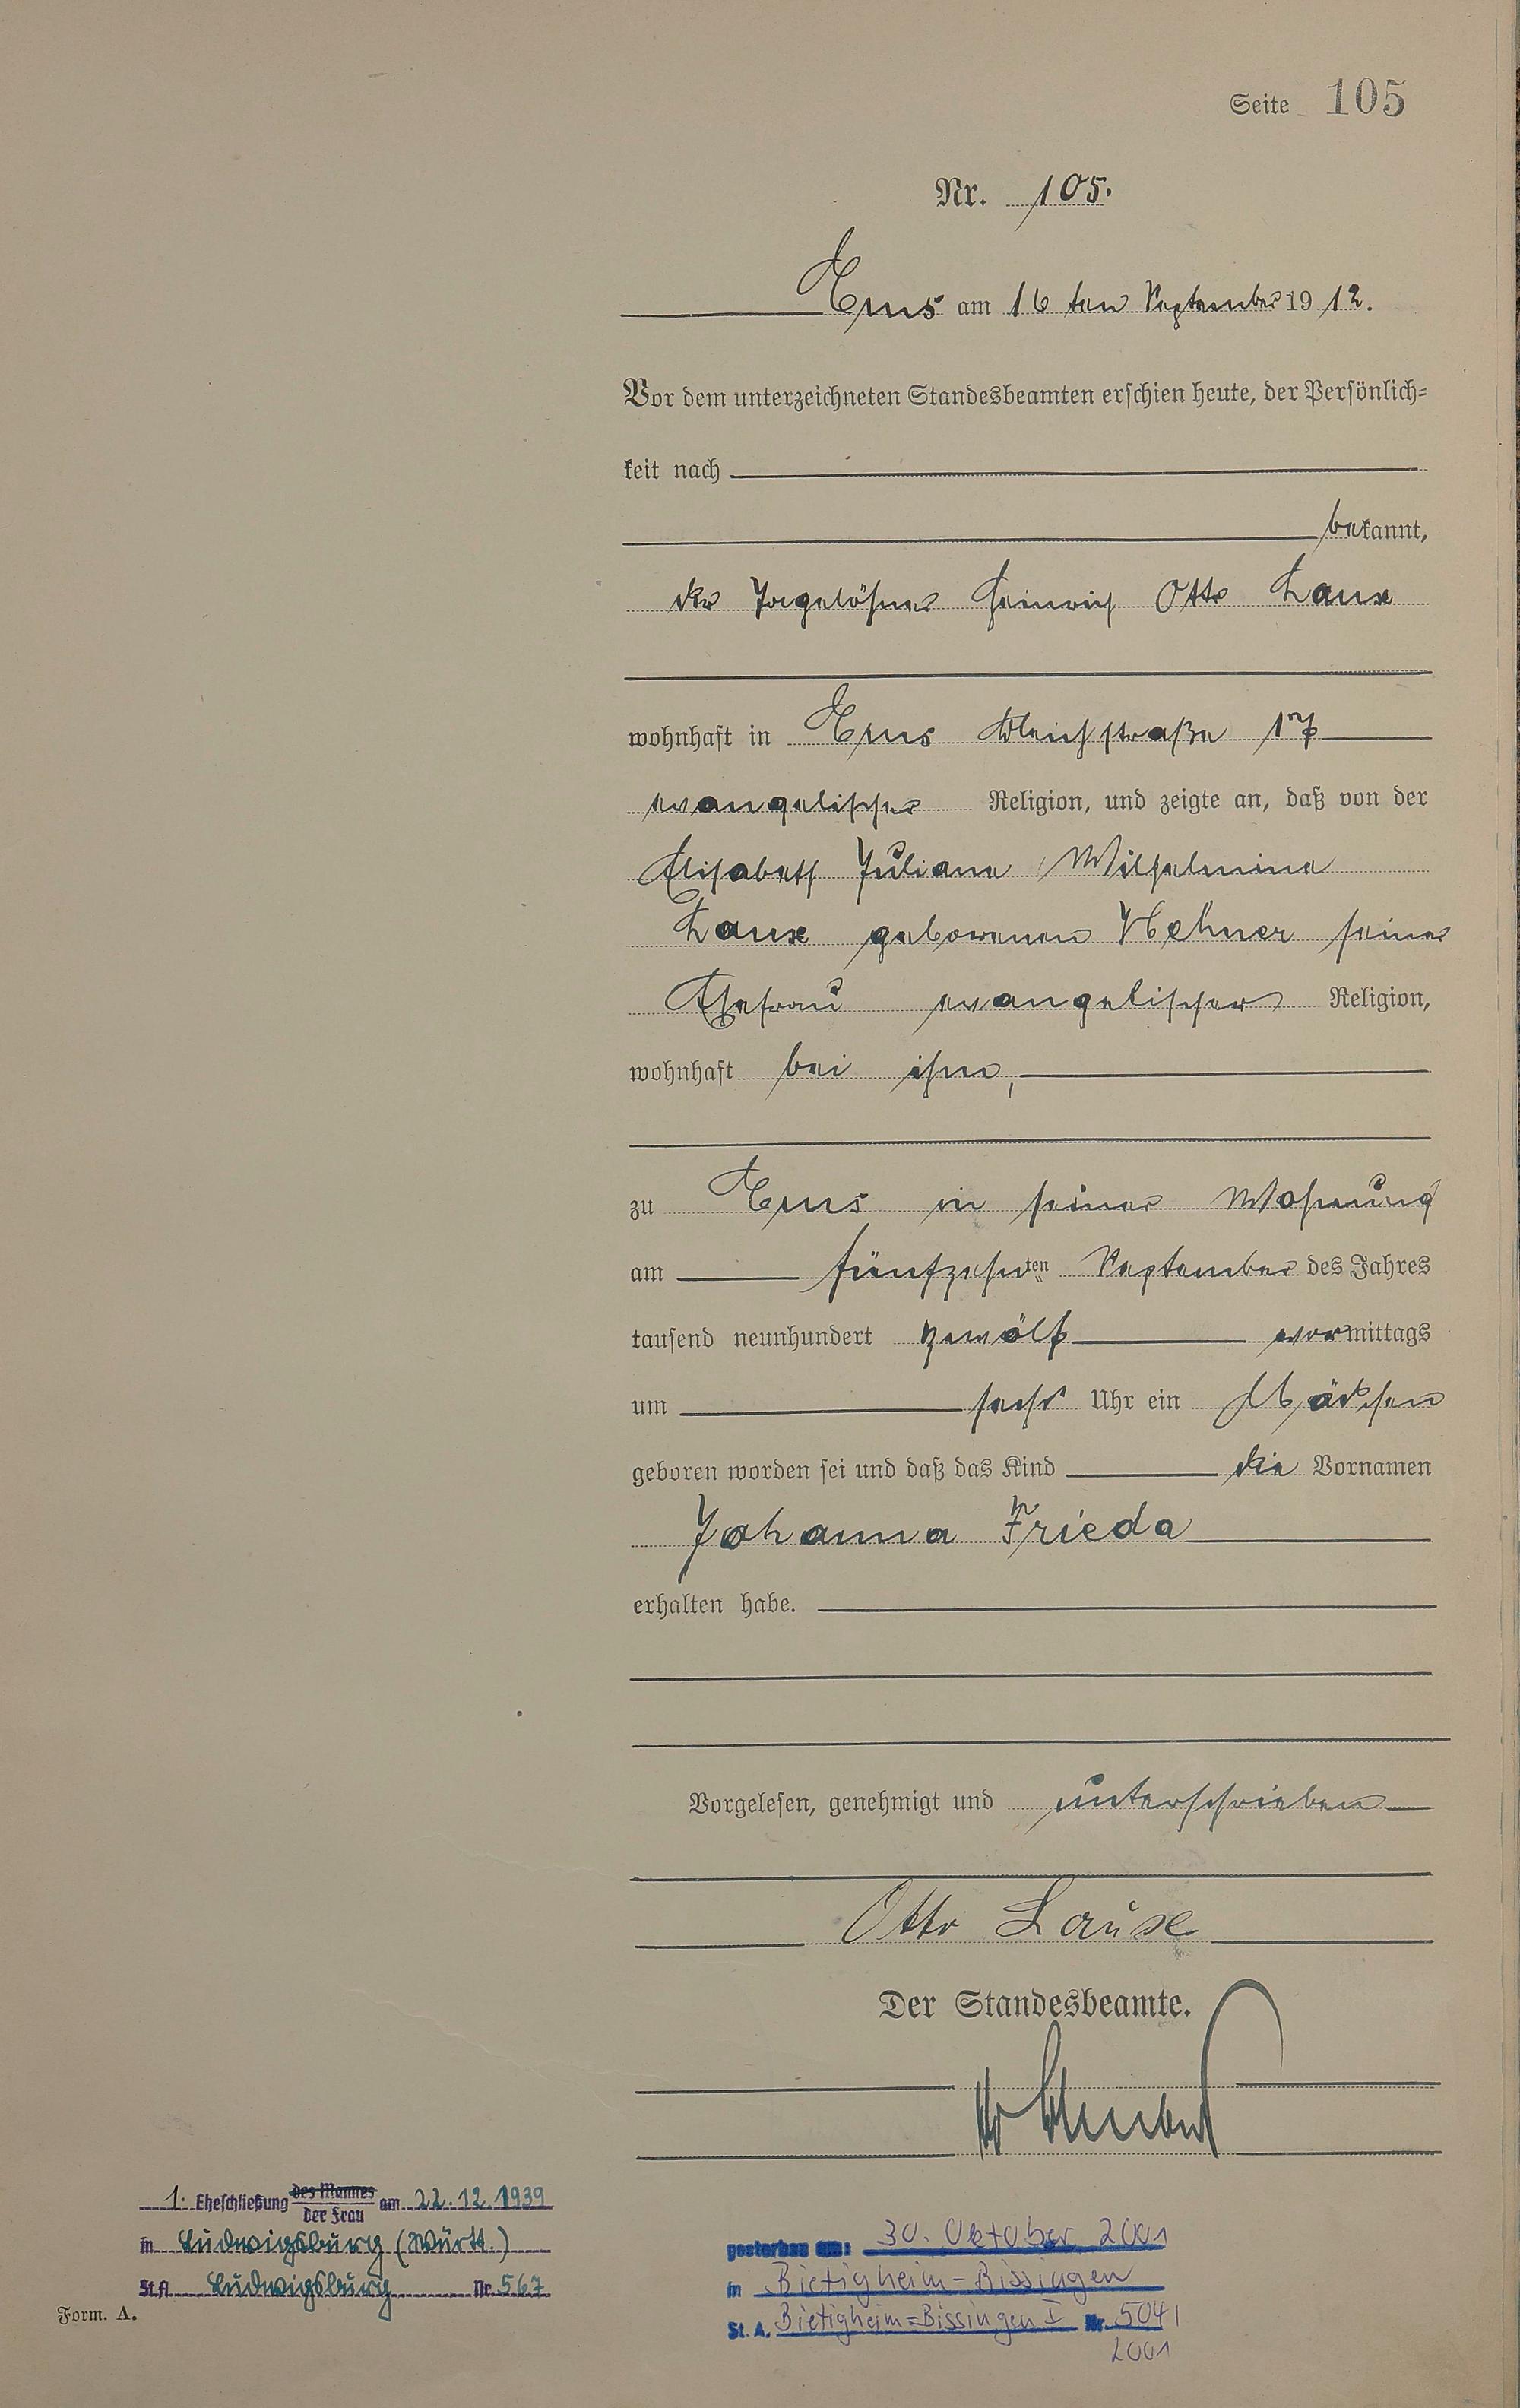 Seite 105
Nr. 105.
Ems am 16 ten September 1912.
Vor dem unterzeichneten Standesbeamten erschien heute, der Persönlich=
keit nach
bekannt,
der Tagelöhner Heinrich Otto Lause
wohnhaft in Ems Bleichstraße 17
evangelischer Religion, und zeigte an, daß von der
Elisabeth Juliane Wilhelmine
Lause geborenen Hehner seiner
Ehefrau evangelischer Religion,
wohnhaft bei ihm,
zu Ems in seiner Wohnung
am fünfzehnten September des Jahres
tausend neunhundert zwölf vormittags
um sechs Uhr ein Mädchen
geboren worden sei und daß das Kind die Vornamen
Johanna Frieda
erhalten habe.
Vorgelesen, genehmigt und unterschrieben
Otto Lause
Der Standesbeamte.
1. Eheschließung des Mannes
der Frau am 22.12.1939
in Ludwigsburg (Württ.)
St.A. Ludwigsburg Nr. 567
Form. A.
gestorben am: 30. Oktober 2001
in Bietigheim-Bissingen
St. A. Bietigheim=Bissingen I Nr. 504/
2001